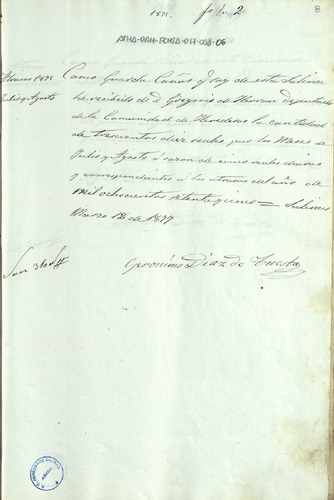 1871. fo. 2
8
ATHA-DAH-FCHSA-017-008-06
Alvarez 1871
Julio y Agosto
Como Guarda Caños q.e soy de esta Salinas
he recibido de D. Gregorio de Herran Diputado
de la Comunidad de Herederos la cantidad
de trescientos diez reales por los Meses de
Julio y Agosto á razon de cinco reales diarios
y correspondientes á los atrasos del año de
mil ochocientos setenta y uno = Salinas
Marzo 12 de 1877
Son 310 rs
Geronimo Diaz de Tuesta